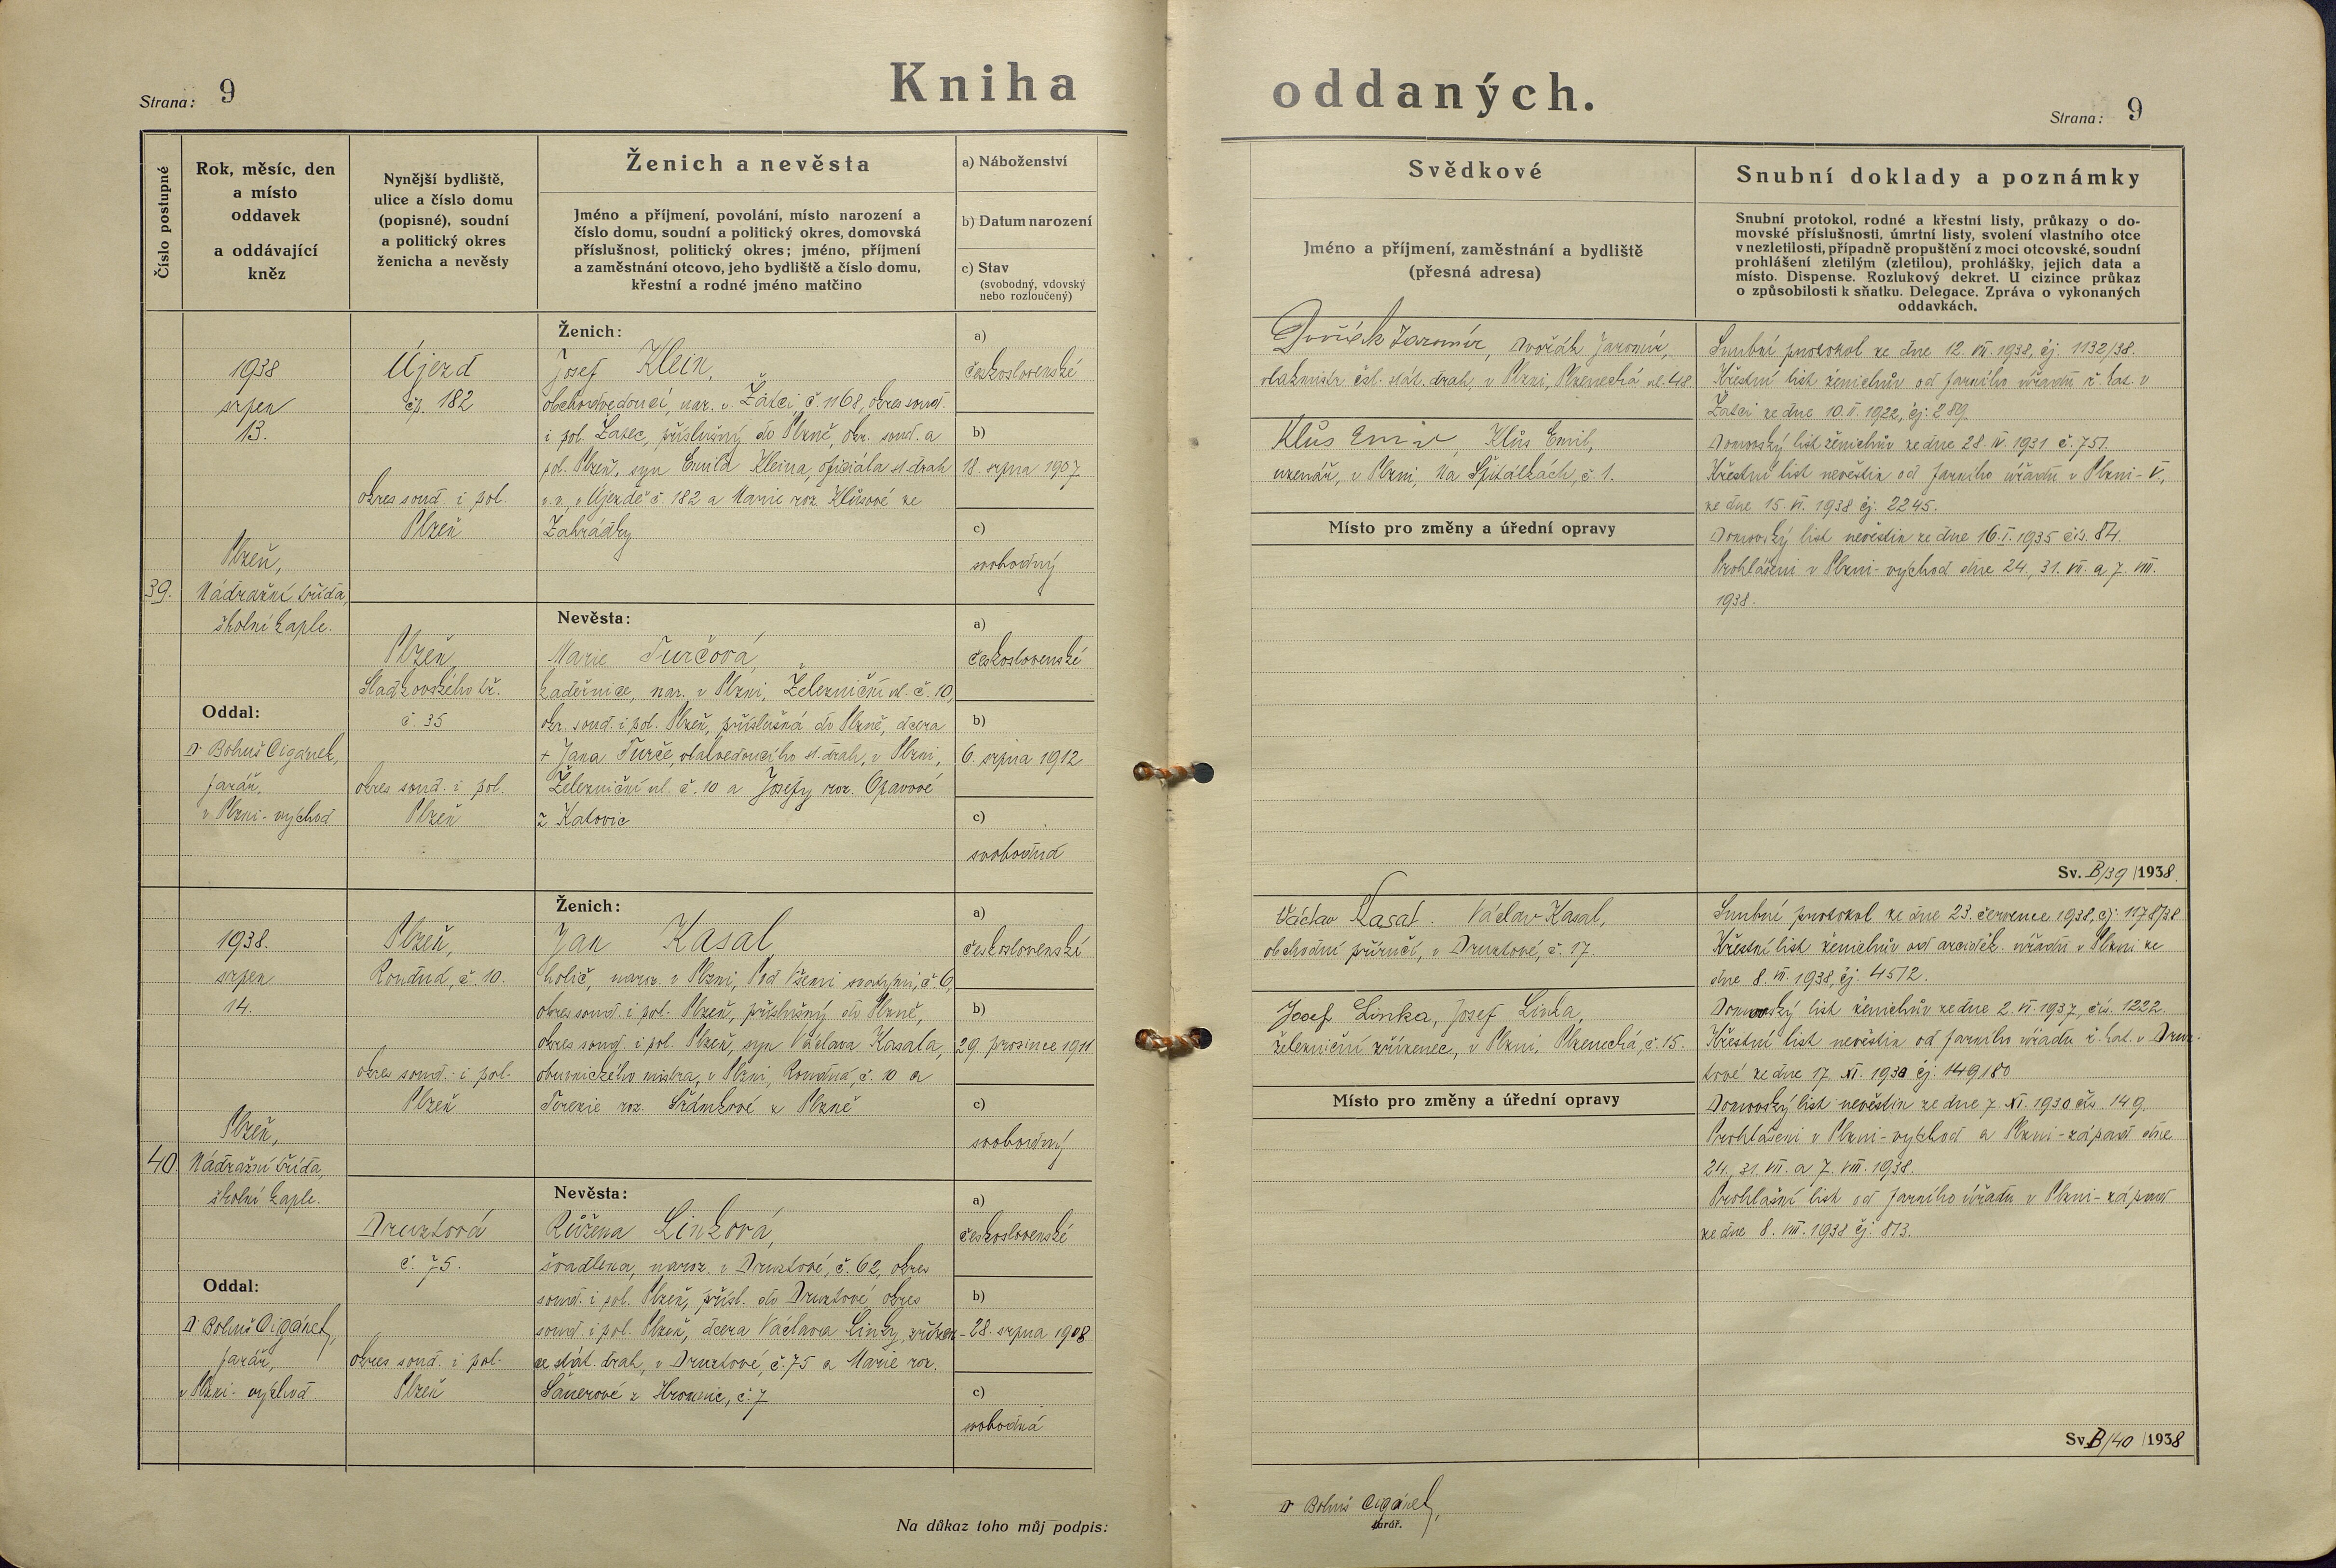 Strana: 9
Kniha
oddaných.
Strana: 9
Číslo postupné
Rok, měsíc, den
a místo
oddavek
a oddávající
kněz
Nynější bydliště,
ulice a číslo domu
(popisné), soudní
a politický okres
ženicha a nevěsty
Ženich a nevěsta
Jméno a příjmení, povolání, místo narození a
číslo domu, soudní a politický okres, domovská
příslušnost, politický okres; jméno, příjmení
a zaměstnání otcovo, jeho bydliště a číslo domu,
křestní a rodné jméno matčino
a) Náboženství
b) Datum narození
c) Stav
(svobodný, vdovský
nebo rozloučený)
Svědkové
Jméno a příjmení, zaměstnání a bydliště
(přesná adresa)
Snubní doklady a poznámky
Snubní protokol, rodné a křestní listy, průkazy o do-
movské příslušnosti, úmrtní listy, svolení vlastního otce
v nezletilosti, případně propuštění z moci otcovské, soudní
prohlášení zletilým (zletilou), prohlášky, jejich data a
místo. Dispense. Rozlukový dekret. U cizince průkaz
o způsobilosti k sňatku. Delegace. Zpráva o vykonaných
oddavkách.
39.
1938
srpen
13.
Plzeň,
Nádražní třída,
školní kaple.
Oddal:
Dr Bohuš Cigánek,
farář,
v Plzni-východ
Újezd
čp. 182
okres soud. i pol.
Plzeň
Plzeň,
Sladkovského tř.
č. 35
okres soud. i pol.
Plzeň
Ženich:
Josef Klein,
obchodvedoucí, nar. v Žatci, č. 1168, okres soud.
i pol. Žatec, příslušný do Plzně, okr. soud. a
pol. Plzeň, syn Emila Kleina, oficiála st. drah
v. v., v Újezdě č. 182 a Marie roz. Klůsové ze
Zahrádky
Nevěsta:
Marie Turčová,
kadeřnice, nar. v Plzni, Železniční ul. č. 10,
okr. soud. i pol. Plzeň, příslušná do Plzně, dcera
+ Jana Turče, vlakvedoucího st. drah, v Plzni,
Železniční ul. č. 10 a Josefy roz. Opavové
z Katovic
a)
československé
b)
18. srpna 1907
c)
svobodný
a)
československé
b)
6. srpna 1912
c)
svobodná
Dvořák Jaromír, Dvořák Jaromír,
vlakmistr čsl. stát. drah, v Plzni, Plzenecká ul. 48
Klůs Emil, Klůs Emil,
uzenář, v Plzni, Na Špitálkách, č. 1.
Místo pro změny a úřední opravy
Snubní protokol ze dne 12. VII. 1938, čj. 1132/38.
Křestní list ženichův od farního úřadu ř. kat. v
Žatci ze dne 10. II. 1922, čj. 289
Domovský list ženichův ze dne 28. IV. 1931 č. 751.
Křestní list nevěstin od farního úřadu v Plzni-V.,
ze dne 15. VI. 1938 čj. 2245.
Domovský list nevěstin ze dne 16. I. 1935 čís. 84.
Prohlášeni v Plzni-východ dne 24., 31. VII. a 7. VIII.
1938.
Sv. B/39 /1938.
40
1938.
srpen
14.
Plzeň,
Nádražní třída,
školní kaple.
Oddal:
Dr Bohuš Cigánek,
farář,
v Plzni-východ
Plzeň,
Roudná, č. 10.
okres soud. i pol.
Plzeň
Druztová
č. 75.
okres soud. i pol.
Plzeň
Ženich:
Jan Kasal
holič, naroz. v Plzni, Pod Všemi svatými, č. 6,
okres soud. i pol. Plzeň, příslušný do Plzně,
okres soud. i pol. Plzeň, syn Václava Kasala,
obuvnického mistra, v Plzni, Roudná, č. 10 a
Terezie roz. Sýrnkové z Plzně
Nevěsta:
Růžena Linková,
švadlena, naroz. v Druztové, č. 62, okres
soud. i pol. Plzeň, přísl. do Druztové, okres
soud. i pol. Plzeň, dcera Václava Linky, zřízen-
ce stát. drah, v Druztové, č. 75 a Marie roz.
Sauerové z Hromnic, č. 7
a)
československé
b)
29. prosince 1911
c)
svobodný
a)
československé
b)
28. srpna 1908
c)
svobodná
Václav Kasal. Václav Kasal,
obchodní příručí, v Druztové, č. 17.
Josef Linka, Josef Linka,
železniční zřízenec, v Plzni, Plzenecká, č. 15.
Místo pro změny a úřední opravy
Snubní protokol ze dne 23. července 1938, čj. 1178/38
Křestní list ženichův od arciděk. úřadu v Plzni ze
dne 8. VII. 1938, čj. 4512.
Domovský list ženichův ze dne 2. VI. 1937, čís. 1222.
Křestní list nevěstin od farního úřadu ř. kat. v Druz-
tové ze dne 17. XI. 1930 čj. 149180
Domovský list nevěstin ze dne 7. XI. 1930 čís. 149.
Prohlášeni v Plzni-východ a Plzni-západ dne
24., 31. VII. a 7. VIII. 1938.
Prohlašní list od farního úřadu v Plzni-západ
ze dne 8. VIII. 1938 čj. 813.
Sv. B/40 /1938
Na důkaz toho můj podpis:
Dr Bohuš Cigánek,
farář.